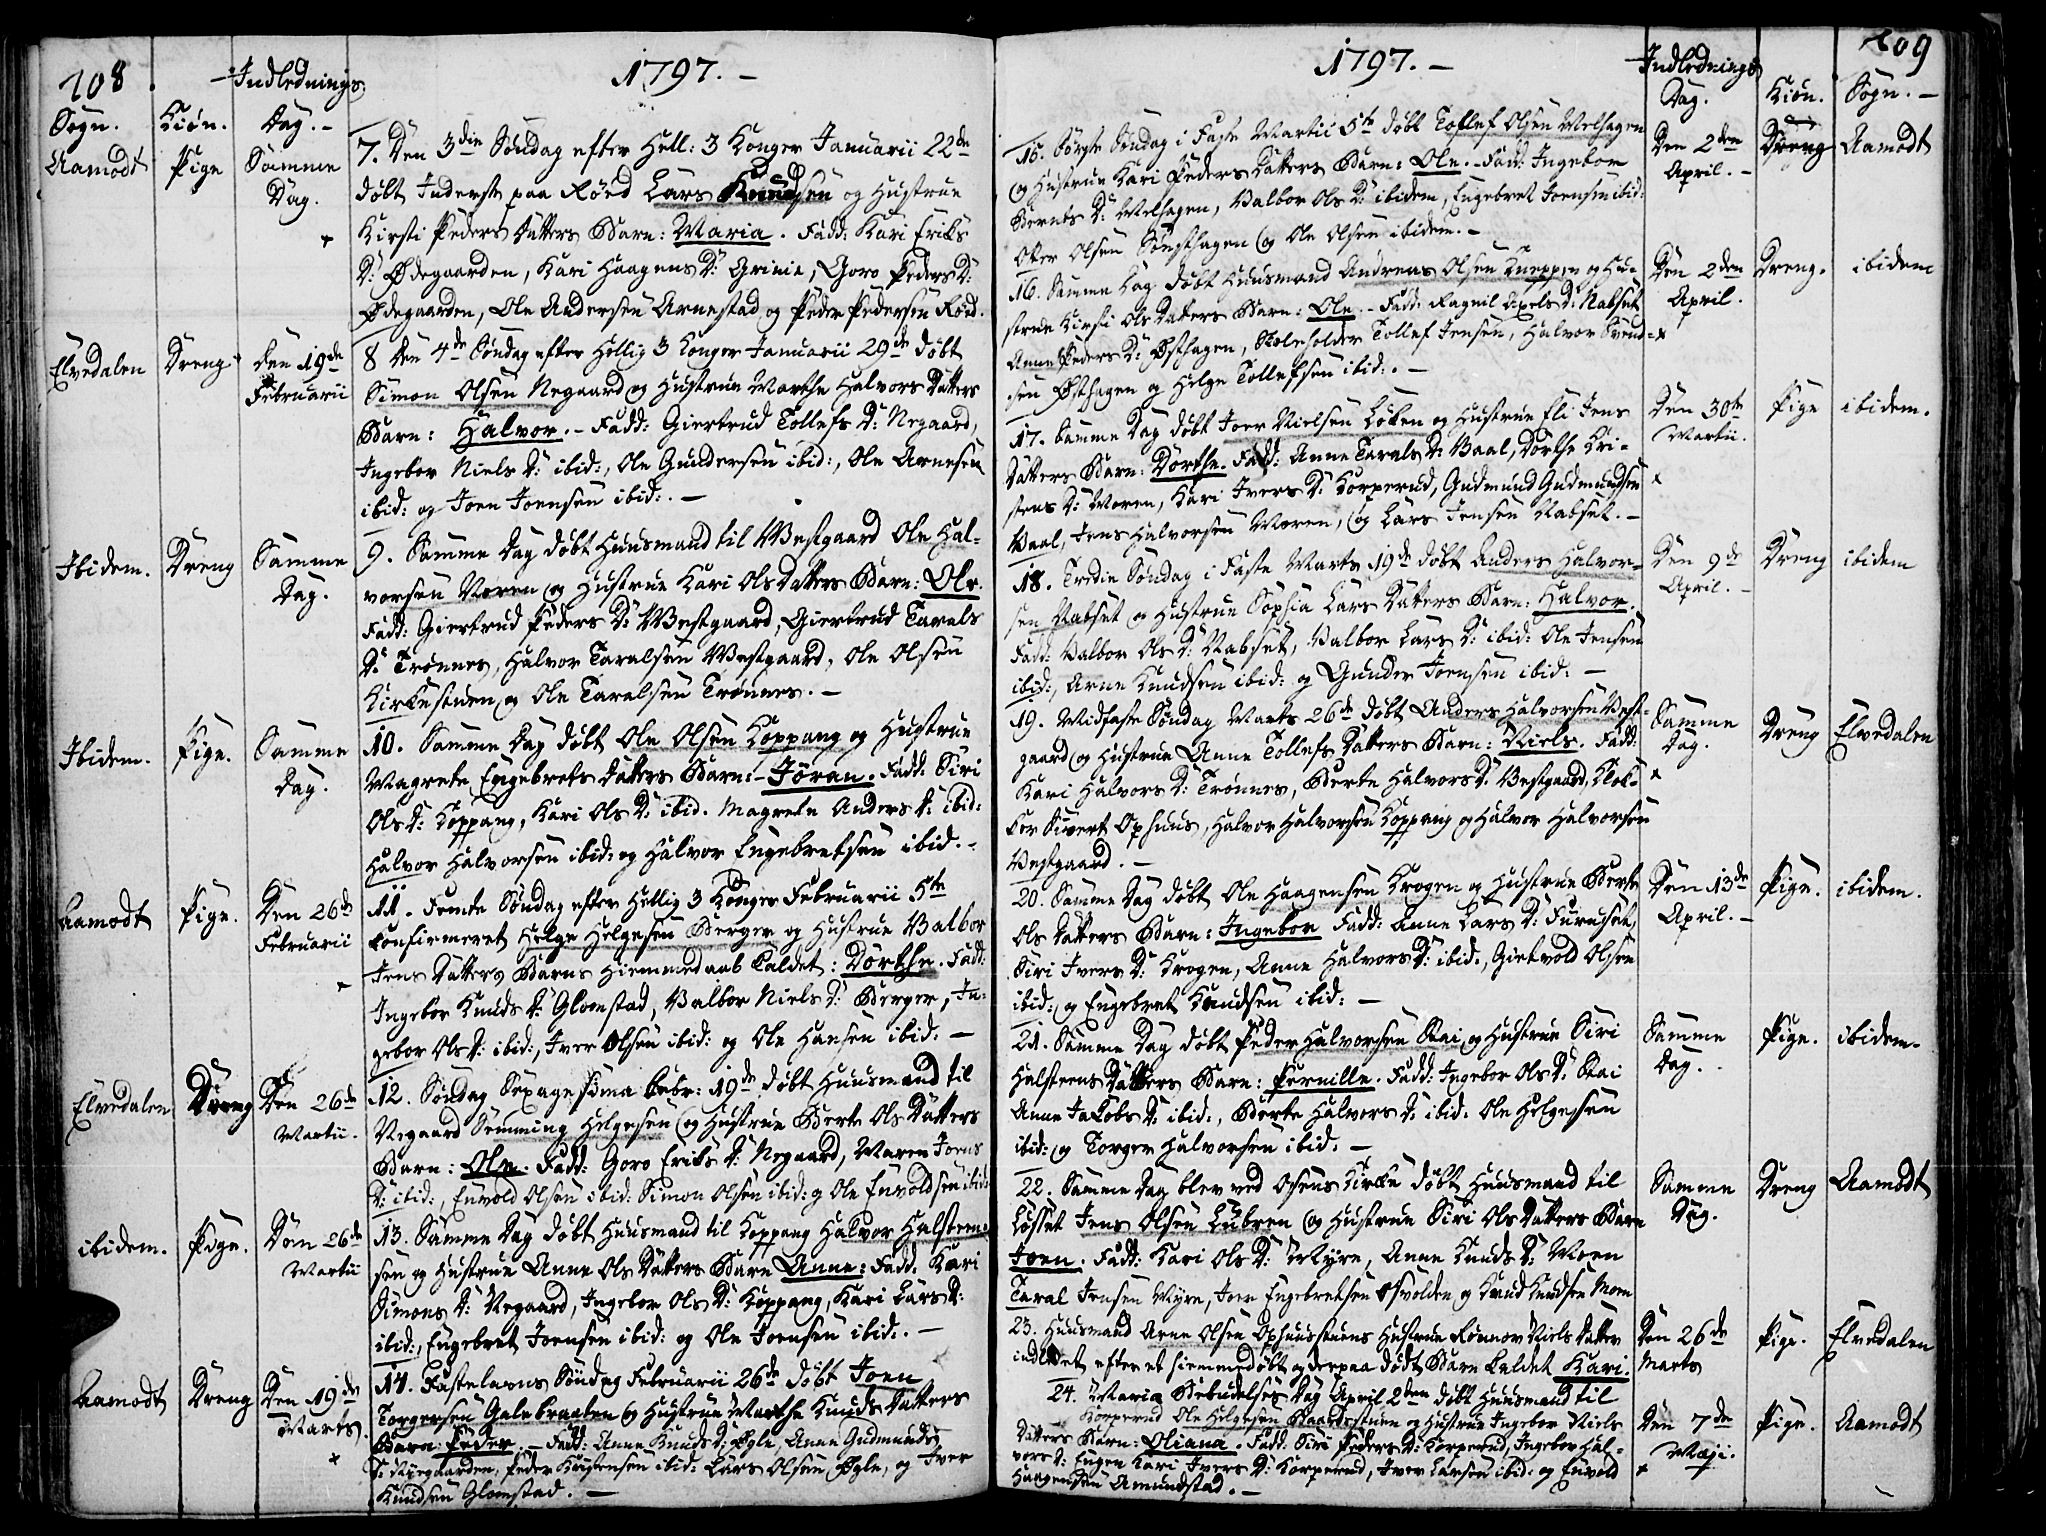 108
1797.-
Indlednings
Sogn. Kiön. Dag.-
Aamodt Pige Samme Dag.
7. Den 3die Søndag efter Hell: 3 Konger Januarii 22de
døbt Inderst paa Røed Lars Knudsen og Hustrue
Kirsti Peders Datters Barn: Maria. Fadd: Kari Eriks
D: Ødegaarden, Kari Haagens D: Grinie, Goro Peders D:
Ødegaarden, Ole Andersen Arnestad og Peder Pedersen Röed.
Elvedalen Dreng den 19de Februarii
8 den 4de Søndag efter Hellig 3 Konger Januarii 29de døbt
Simon Olsen Negaard og Hustrue Marthe Halvors Datters
Barn: Halvor.- Fadd: Giertrud Tollefs D: Negaard,
Ingebor Niels D: ibid:, Ole Gundersen ibid:, Ole Arnesen
ibid: og Joen Joensen ibid:.-
Ibidem. Dreng Samme Dag.
9. Samme Dag døbt Huusmand til Westgaard Ole Hal-
vorsen Moren og Hustrue Kari Ols Datters Barn: Ole.
Fadd: Giertrud Peders D: Westgaard, Giertrud Tarals
D: Trønnes, Halvor Taralsen Westgaard, Ole Olsen
Kirkestuen og Ole Taralsen Trønnes.-
Ibidem. Pige. Samme Dag.
10. Samme Dag døbt Ole Olsen Koppang og Hustrue
Magrete Engebrets Datters Barn:- Jöran. Fadd: Siri
Ols D: Koppang, Kari Ols D: ibid. Magrete Anders D: ibid:
Halvor Halvorsen ibid: og Halvor Engebretsen ibid.-
Aamodt Pige. Den 26de Februarii
11. Femte Søndag efter Hellig 3 Konger Februarii 5te
Confirmeret Helge Helgesen Berger og Hustrue Valbor
Jens Datters Barns Hiemmedaab Kaldet: Dorthe. Fadd:
Ingebor Knuds D: Glomstad, Valbor Niels D: Berger, In-
gebor Ols D: ibid:, Iver Olsen ibid: og Ole Hansen ibid:-
Elvedalen Dreng Den 26de Martii.
12. Søndag Sexagesima Febr: 19de døbt Huusmand til
Negaard Semming Helgesen og Hustrue Berte Ols Datters
Barn: Ole. Fadd: Goro Eriks D: Negaard, Maren Joens
D: ibid:, Envold Olsen ibid: Simon Olsen ibid: og Ole Envoldsen ibid:
ibidem. Pige. Den 26de Martii
13. Samme Dag døbt Huusmand til Koppang Halvor Halsteen-
sen og Hustrue Anne Ols Datters Barn Anne: Fadd: Kari
Simons D: Negaard, Ingebor Ols D: Koppang, Kari Lars D:
ibid:, Engebret Joensen ibid: og Ole Joensen ibid:.-
Aamodt Dreng Den 19de Marts
14. Fastelavns Søndag Februarii 26de døbt Joen
Torgersen Galebraaten og Hustrue Marthe Knuds Datters
Barn: Peder.- Fadd: Anne Knuds D: Ögle, Anne Gudmunds
D: Nyegaarden, Peder Knudsen ibid: Lars Olsen Ögle, og Iver
Knudsen Glomstad.-
109
1797.-
Indlednings Dag. Kiön. Sogn.-
15. Første Søndag i Faste Martii 5te døbt Tollef Olsen Melhagen
og Hustrue Kari Peders Datters Barn: Ole. Fadd: Ingebor
Bernts D: Melhagen, Valbor Ols D: ibidem, Engebret Joensen ibid:
Oter Olsen Søgsthagen og Ole Olsen ibidem.-
Den 2den April.- Dreng Aamodt
16. Samme Dag døbt Huusmand Andreas Olsen Kneppen og Hu-
strue Kirsti Ols Datters Barn: Ole.- Fadd: Ragnil Axels D: Nabset
Anne Peders D: Østhagen, Skoleholder Tollef Jensen, Halvor Svend-
sen Østhagen og Helge Tollefsen ibid:.-
Den 2den April. Dreng. ibidem
17. Samme Dag døbt Joen Nielsen Løken og Hustrue Eli Jens
Datters Barn: Dorthe. Fadd: Anne Tarals D: Vaal, Dorthe Kri-
stens D: Moren, Kari Ivers D: Korperud, Gudmund Gudmundsen
Vaal, Jens Halvorsen Moren, og Lars Jensen Nabset.-
Den 30te Martii. Pige ibidem.
18. Tredie Søndag i Faste Marts 19de døbt Anders Halvor-
sen Nabset og Hustrue Sophia Lars Datters Barn: Halvor.
Fadd: Valbor Ols D: Nabset, Valbor Lars D: ibid: Ole Jensen
ibid:, Arne Knudsen ibid: og Gunder Joensen ibid:-
Den 9de April.- Dreng ibidem
19. Midfaste Søndag Marts 26de døbt Anders Halvorsen Vest-
gaard og Hustrue Anne Tollefs Datters Barn: Niels. Fadd:
Kari Halvors D: Trønnes, Berte Halvors D: Vestgaard, Klok-
ker Sivert Ophuus, Halvor Halvorsen Koppang og Halvor Halvorsen
Vestgaard.-
Samme Dag. Dreng Elvedalen
20. Samme Dag døbt Ole Haagensen Krogen og Hustrue Berte
Ols Datters Barn: Ingebor Fadd: Anne Lars D: Furuset,
Siri Ivers D: Krogen, Anne Halvors D: ibid:, Gietvold Olsen
ibid: og Engebret Knudsen ibid:-
Den 13de April.- Pige. ibidem.
21. Samme Dag døbt Peder Halvorsen Stai og Hustrue Siri
Halsteens Datters Barn: Pernille. Fadd: Ingebor Ols D: Stai
Anne Jakobs D: ibid:, Berte Halvors D: ibid: Ole Helgesen
ibid: og Torger Halvorsen ibid:-
Samme Dag. Pige. ibidem.
22. Samme Dag blev ved Osens Kirke døbt Huusmand til
Løsset Jens Olsen Lubren og Hustrue Siri Ols Datters Barn
Joen. Fadd: Kari Ols D: Myre, Anne Knuds D: Moen
Taral Jensen Myre, Joen Engebretsen Osvolden og Knud Knudsen Moen
Samme Dag. Dreng Aamodt
23. Huusmand Arne Olsen Ophuusstuens Hustrue Rønnov Niels Datter
indledet efter et hiemmedøbt og derpaa dødt Barn kaldet Kari.
Den 26de Marts Pige. Elvedalen
24. Mariæ Bebudelses Dag April 2den døbt Huusmand til
Korperud Ole Helgesen Baardsstuen og Hustrue Ingebor Niels
Datters Barn: Oliana. Fadd: Siri Peders D: Korperud, Ingebor Hal-
vors D: Engen Kari Ivers D: Korperud, Iver Larsen ibid: og Envold
Haagensen Amundstad.-
Den 7de Maji. Pige. Aamodt